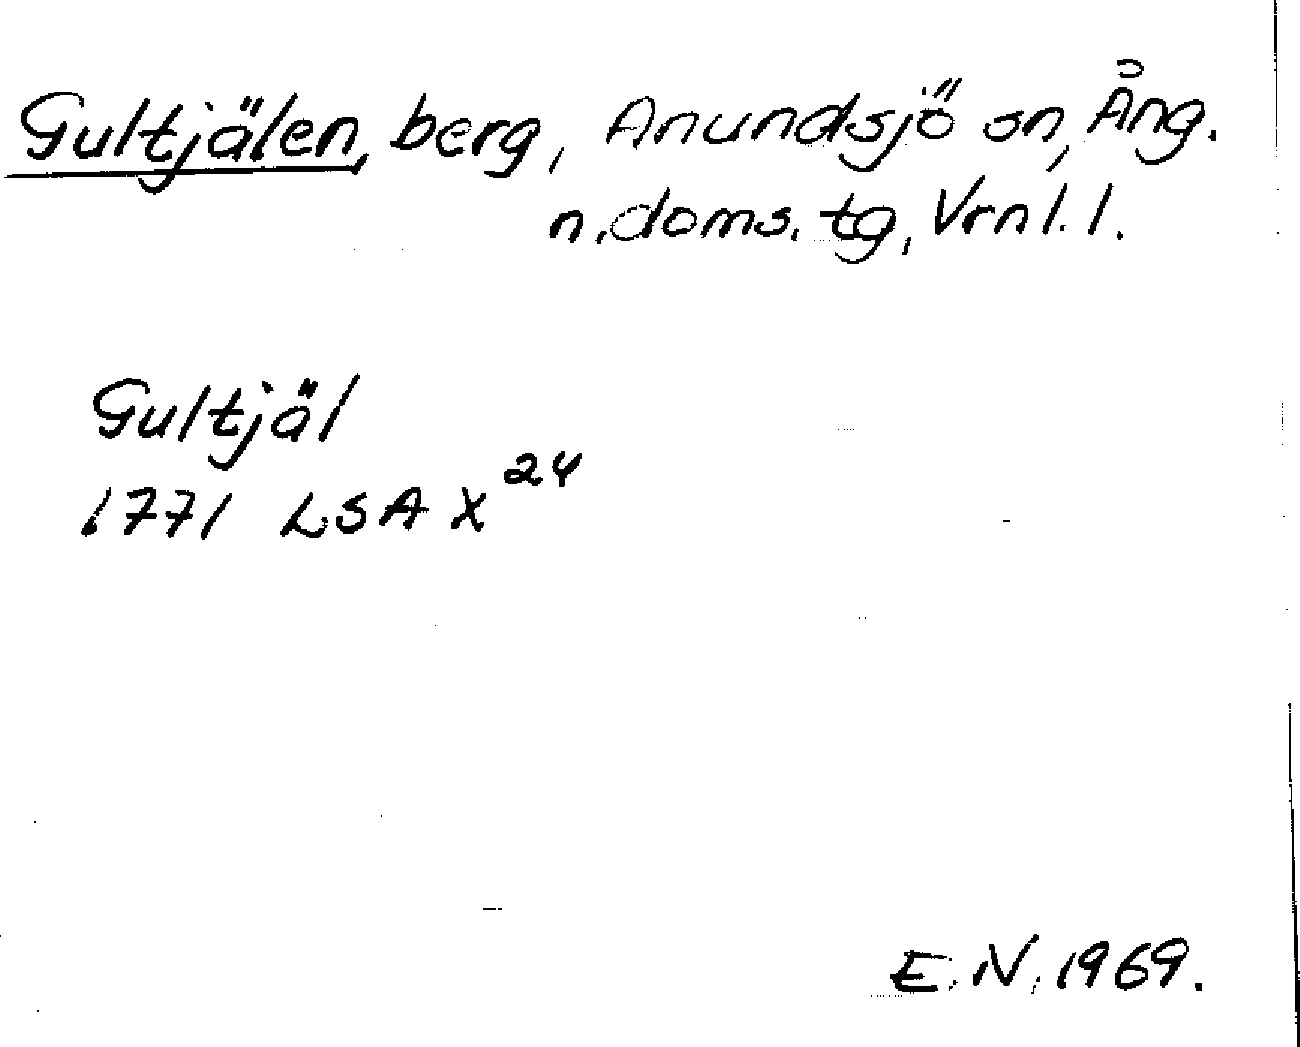 Gultjälen, berg, Anundsjö sn, Ång.
n. doms. tg, Vrnl. l.
Gultjäl
1771 LSA X 24
E. N. 1969.